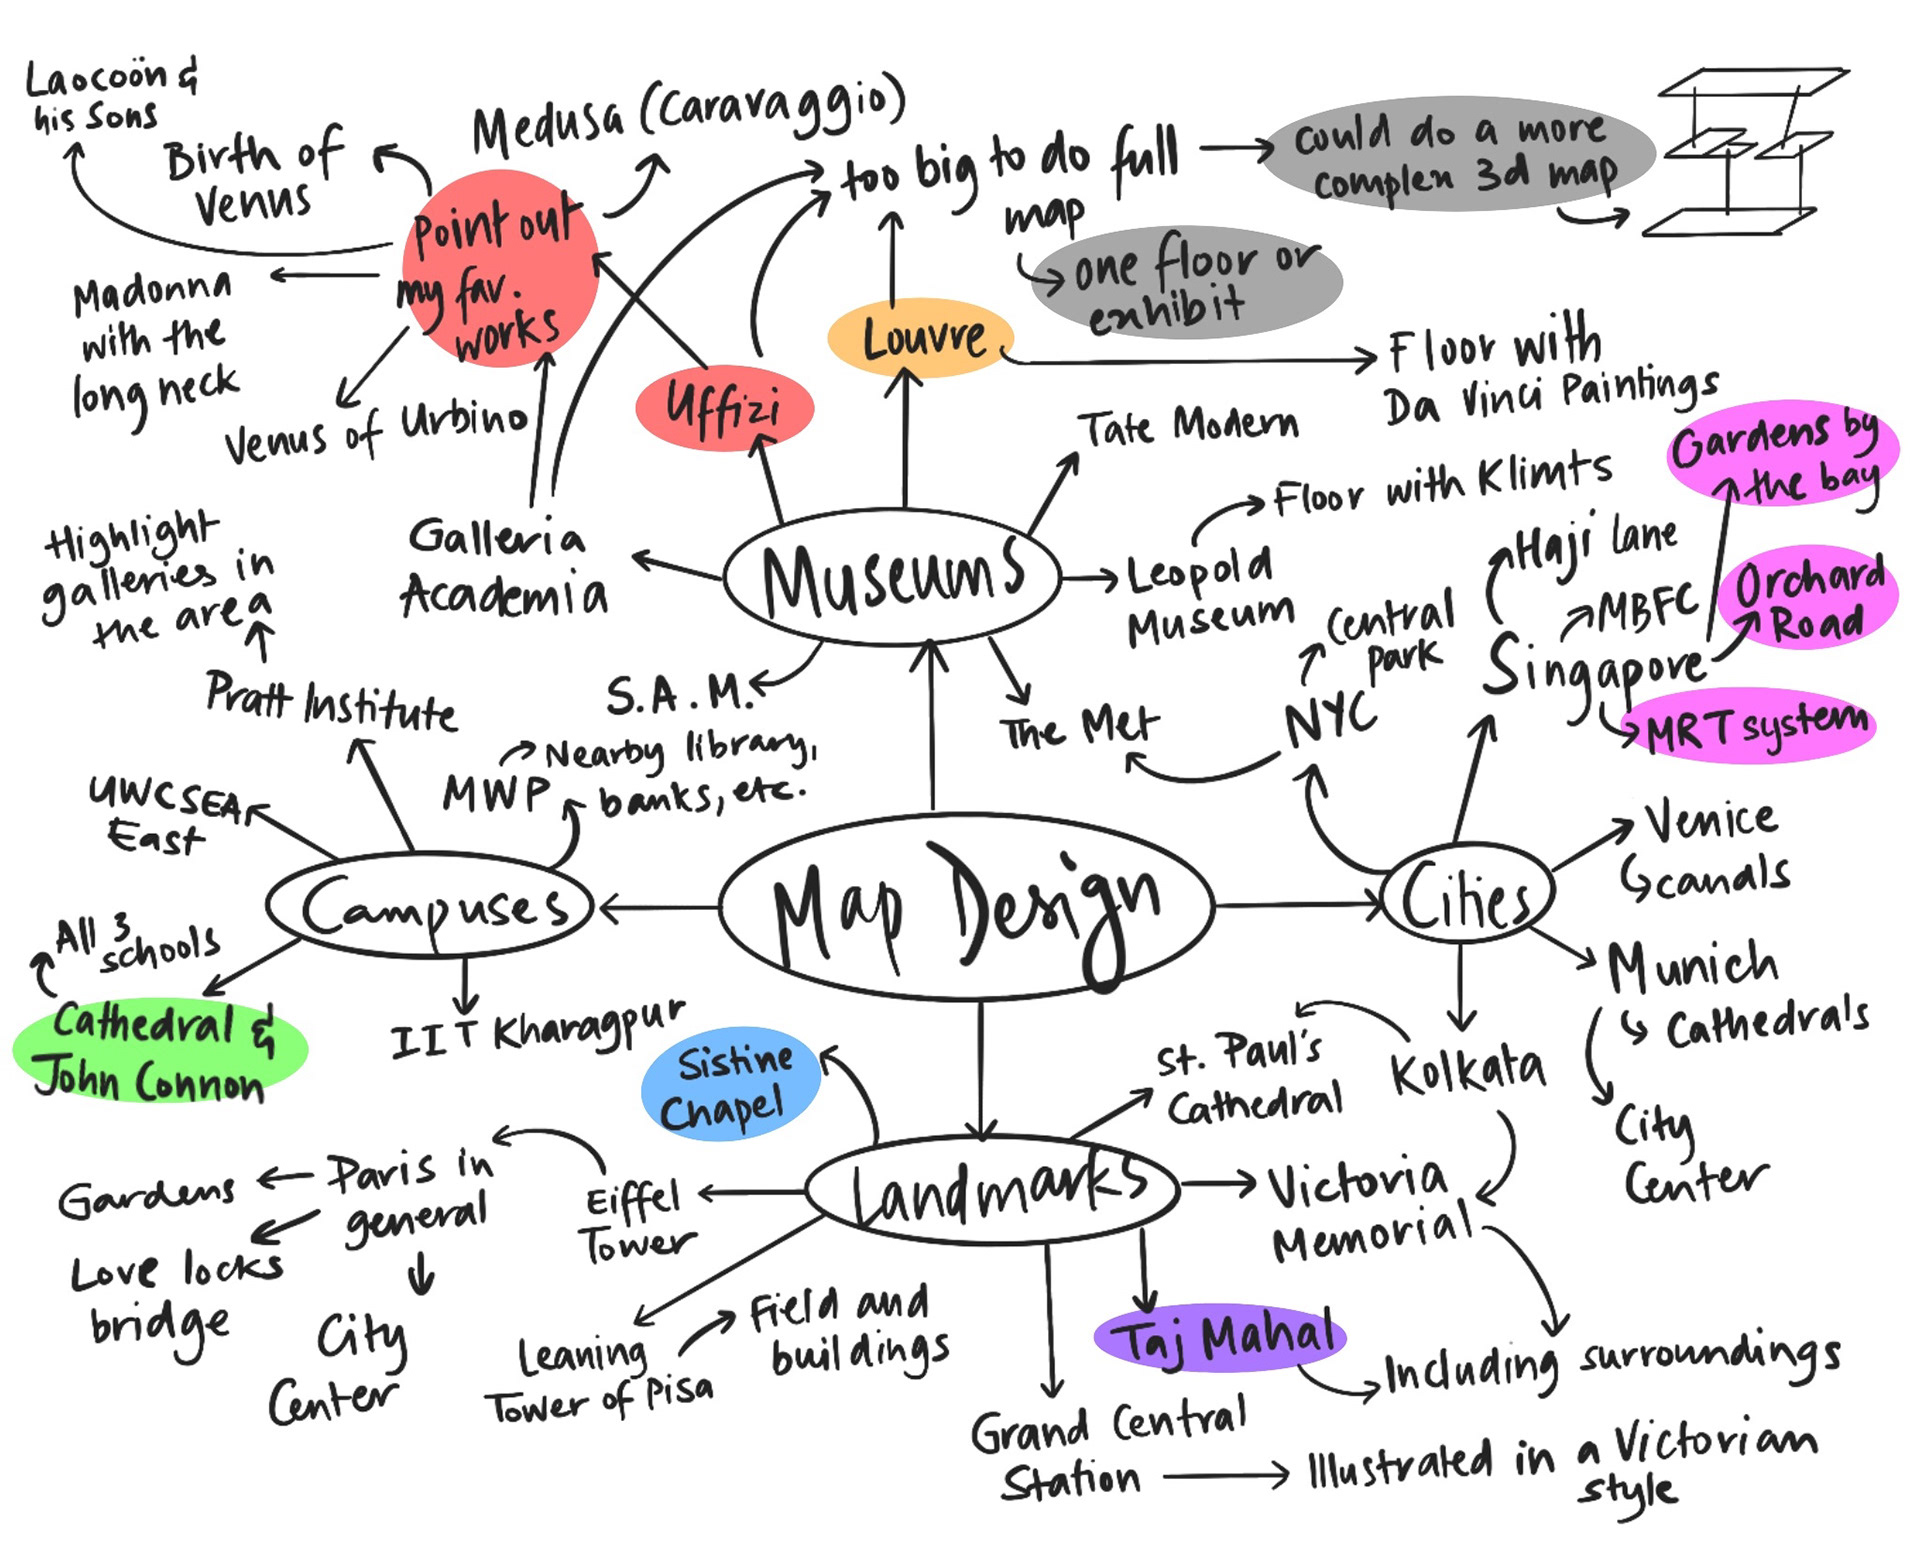 Laocoön &
his Sons
Birth of
Venus
Medusa (Caravaggio)
too big to do full
map
could do a more
complex 3d map
one floor or
exhibit
Point out
my fav.
works
Madonna
with the
long neck
Venus of Urbino
Uffizi
Louvre
Floor with
Da Vinci Paintings
Tate Modern
Floor with Klimts
Leopold
Museum
Museums
Galleria
Academia
Highlight
galleries in
the area
Pratt Institute
S.A.M.
The Met
Central
park
NYC
Gardens by
the bay
Haji lane
MBFC
Orchard
Road
Singapore
MRT system
MWP
Nearby library,
banks, etc.
UWCSEA
East
Campuses
All 3
schools
Cathedral &
John Connon
IIT Kharagpur
Map Design
Cities
Venice
canals
Munich
Cathedrals
City
Center
Kolkata
St. Paul's
Cathedral
Sistine
Chapel
Landmarks
Victoria
Memorial
Eiffel
Tower
Paris in
general
Gardens
Love locks
bridge
City
Center
Leaning
Tower of Pisa
Field and
buildings
Taj Mahal
Including surroundings
Grand Central
Station
Illustrated in a Victorian
style